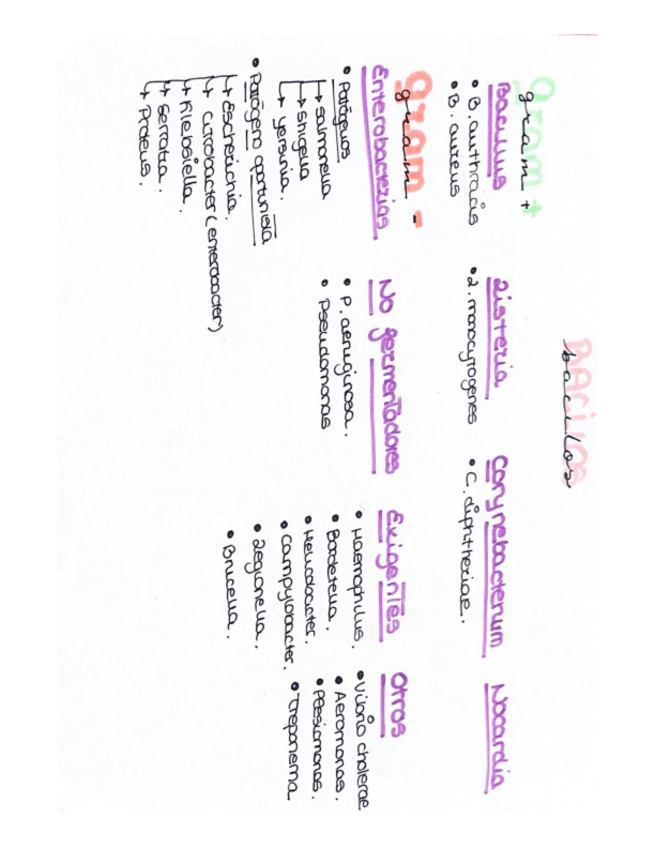 BACILOS
bacilos
gram +
gram +
Bacillus
• B. anthracis
• B. aureus
Listeria
• L. monocytogenes
Corynebacterium
• C. diphtheriae.
Nocardia
gram -
gram
Enterobacterias
• Patógenos
→ salmonella
→ shigella
→ yersinia.
• Patógeno oportunista
→ Escherichia.
→ citrobacter (enterobacter)
→ Klebsiella.
→ serratia.
→ Proteus.
No fermentadores
• P. aeruginosa.
• Pseudomonas
Exigentes
• Haemophilus.
• Bordetella.
• Helicobacter.
• Campylobacter.
• Legionella.
• Brucella.
Otros
• Vibrio cholerae
• Aeromonas.
• Plesiomonas.
• Treponema